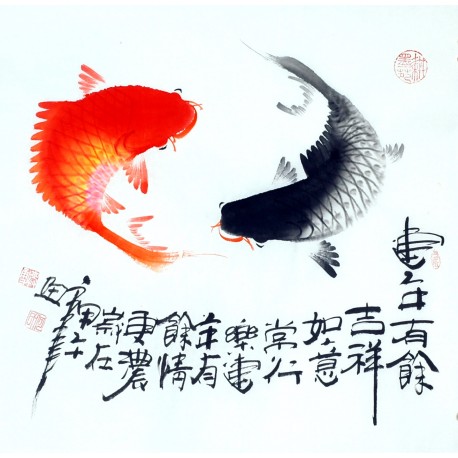 連年有餘
吉祥
如意
常行
樂連
年有
餘情
更濃